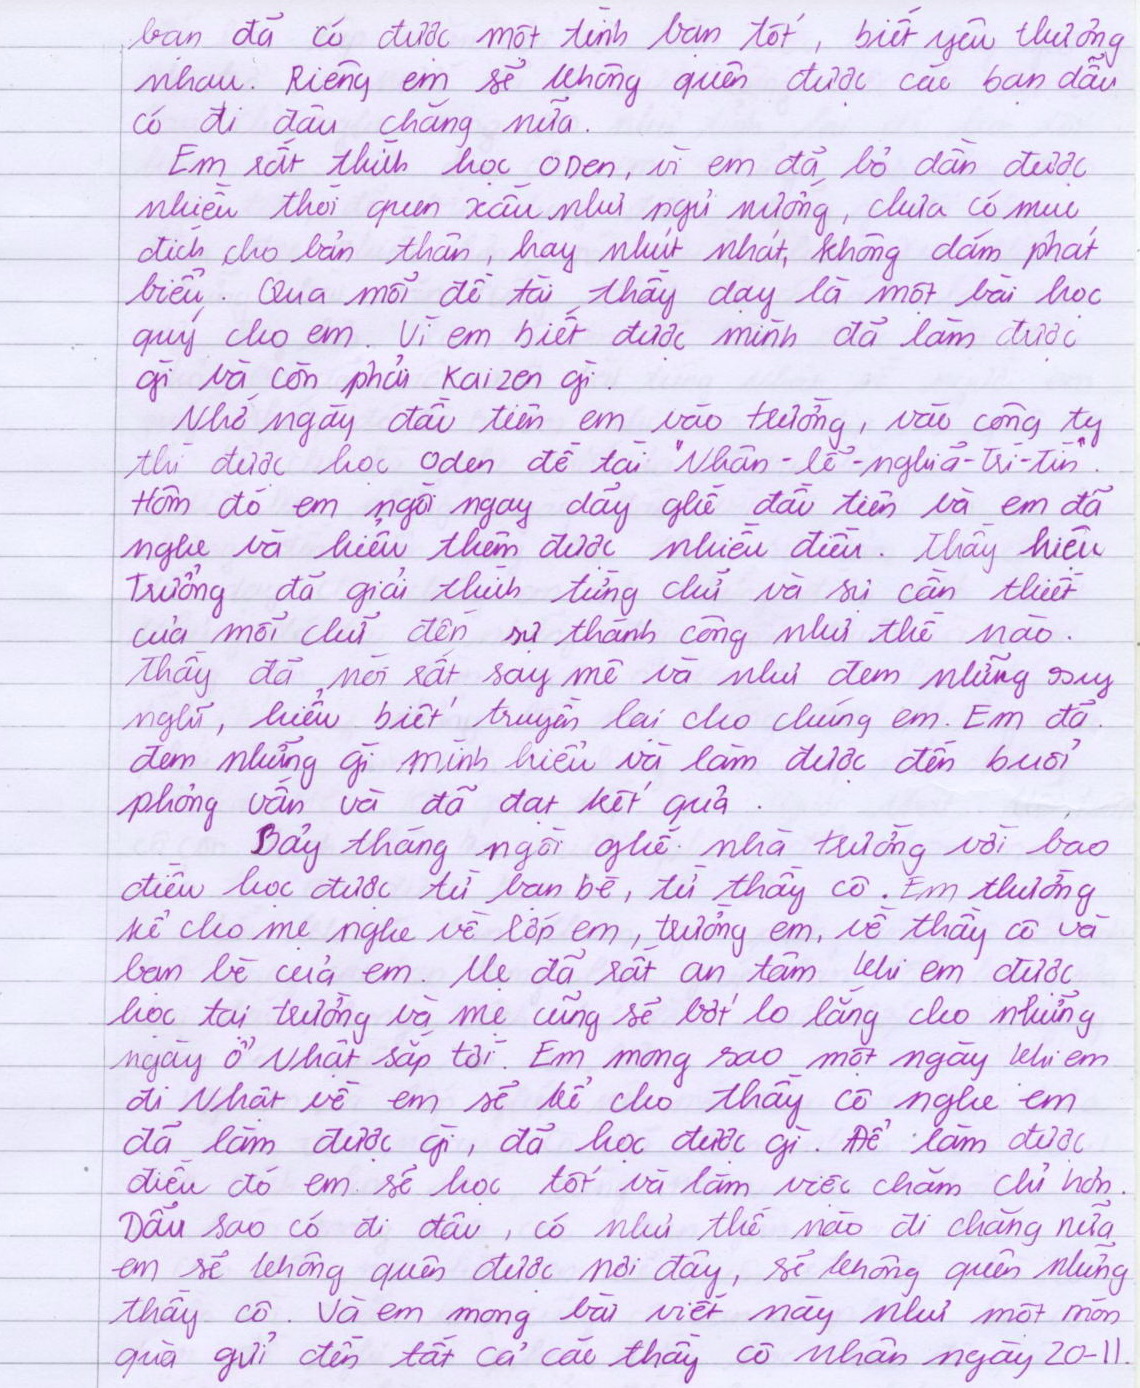 bạn đã có được một tình bạn tốt, biết yêu thương
nhau. Riêng em sẽ không quên được các bạn dẫu
có đi đâu chăng nữa.
Em rất thích học ODen, vì em đã bỏ dần được
nhiều thói quen xấu như ngủ nướng, chưa có mục
đích cho bản thân, hay nhút nhát, không dám phát
biểu. Qua mỗi đề tài thầy dạy là một bài học
quý cho em. Vì em biết được mình đã làm được
gì và còn phải Kaizen gì.
Nhớ ngày đầu tiên em vào trường, vào công ty
thì được học Oden đề tài "Nhân-lễ-nghĩa-Trí-Tín".
Hôm đó em ngồi ngay dãy ghế đầu tiên và em đã
nghe và hiểu thêm được nhiều điều. Thầy hiệu
Trưởng đã giải thích từng chữ và sự cần thiết
của mỗi chữ đến sự thành công như thế nào.
Thầy đã nói rất say mê và như đem những suy
nghĩ, hiểu biết truyền lại cho chúng em. Em đã
đem những gì mình hiểu và làm được đến buổi
phỏng vấn và đã đạt kết quả.
Bảy tháng ngồi ghế nhà trường với bao
điều học được từ bạn bè, từ thầy cô. Em thường
kể cho mẹ nghe về lớp em, trường em, về thầy cô và
bạn bè của em. Mẹ đã rất an tâm khi em được
học tại trường và mẹ cũng sẽ bớt lo lắng cho những
ngày ở Nhật sắp tới. Em mong sao một ngày khi em
đi Nhật về em sẽ kể cho thầy cô nghe em
đã làm được gì, đã học được gì. Để làm được
điều đó em sẽ học tốt và làm việc chăm chỉ hơn.
Dẫu sao có đi đâu, có như thế nào đi chăng nữa
em sẽ không quên được nơi đây, sẽ không quên những
thầy cô. Và em mong bài viết này như một món
quà gửi đến tất cả các thầy cô nhân ngày 20-11.